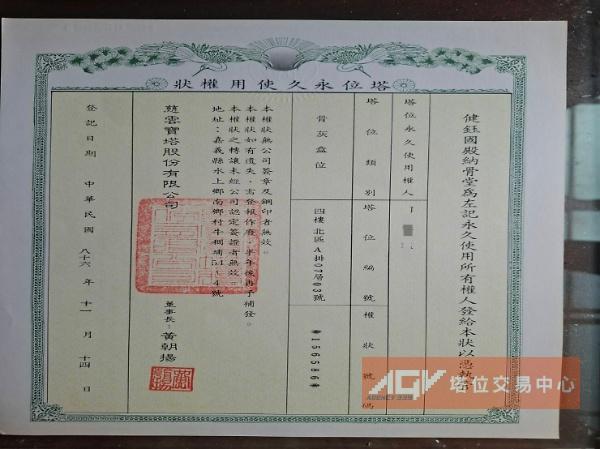 塔位永久使用權狀
健鈺國殿納骨堂為左記永久使用所有權人發給本狀以憑執
塔位永久使用權人
塔位類別
塔位編號
權狀號碼
骨灰盒位
四樓北區A排07層03號
*156586*
本權狀無公司簽章及鋼印者無效。
本權狀如有遺失，需登報作廢，半年後再予補發。
本權狀之轉讓未經公司認定簽證者無效。
地址：嘉義縣水上鄉南鄉村牛稠埔54-4號
慈雲寶塔股份有限公司
董事長：黃朝揚
登記日期 中華民國 八十六 年 十一 月 十四 日
AGV 塔位交易中心
AGENCY 339